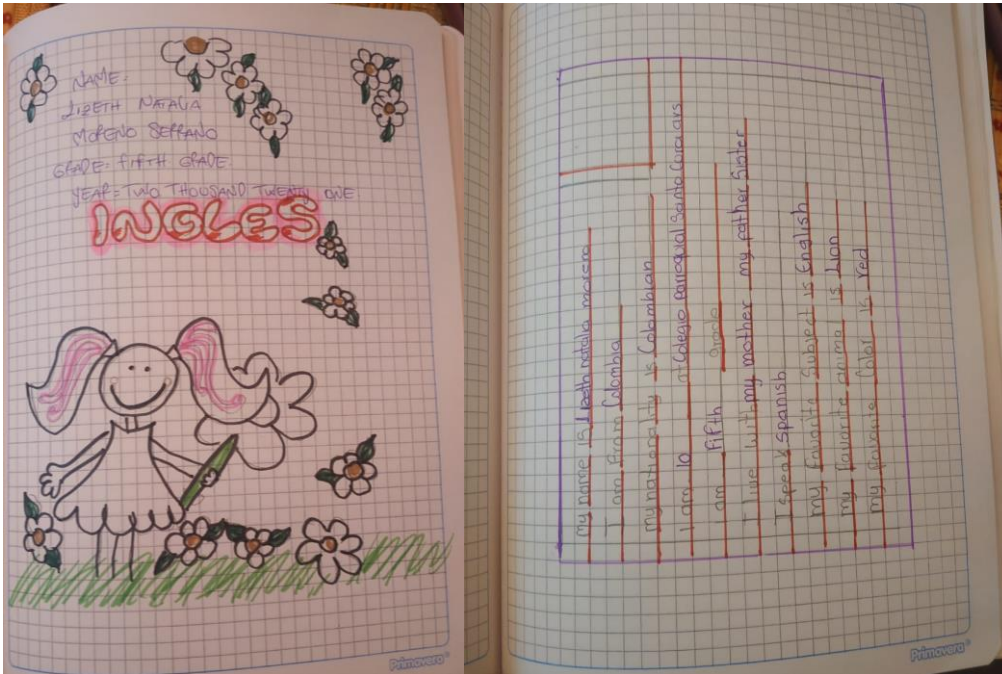 NAME:
LIZETH NATALIA
MORENO SERRANO
GRADE: FIFTH GRADE.
YEAR= TWO THOUSAND TWENTY ONE.
INGLES
Primavera
my name is Lizeth natalia moreno
I am from Colombia
my nationality is Colombian
I am 10 at Colegio parroquial Santo
I am fifth grade
I live with my mother my father Sister
I speak Spanish
my favorite Subject is English
my favorite is Lion
my favorite Color is red
Primavera